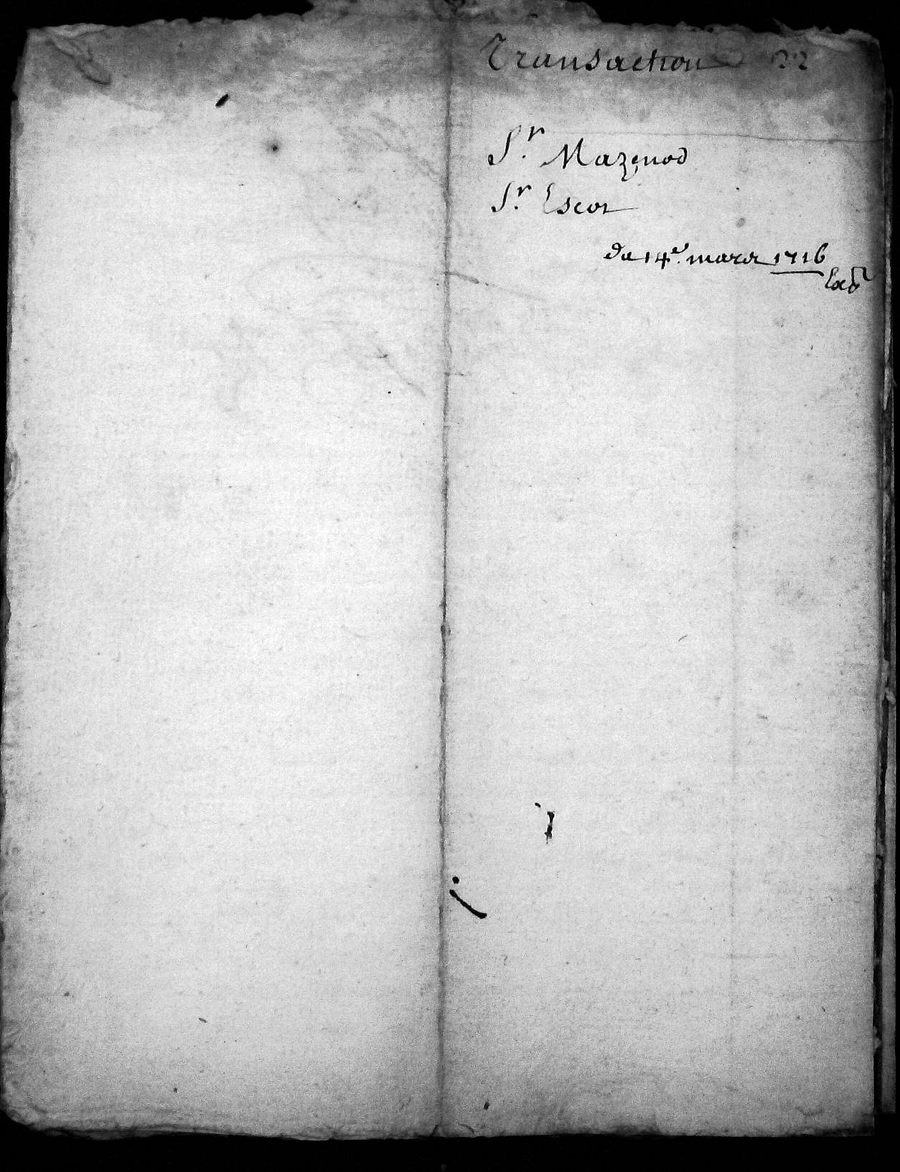 Transaction 22
Sr. Mazenod
Sr. Escot
du 14e. mars 1716